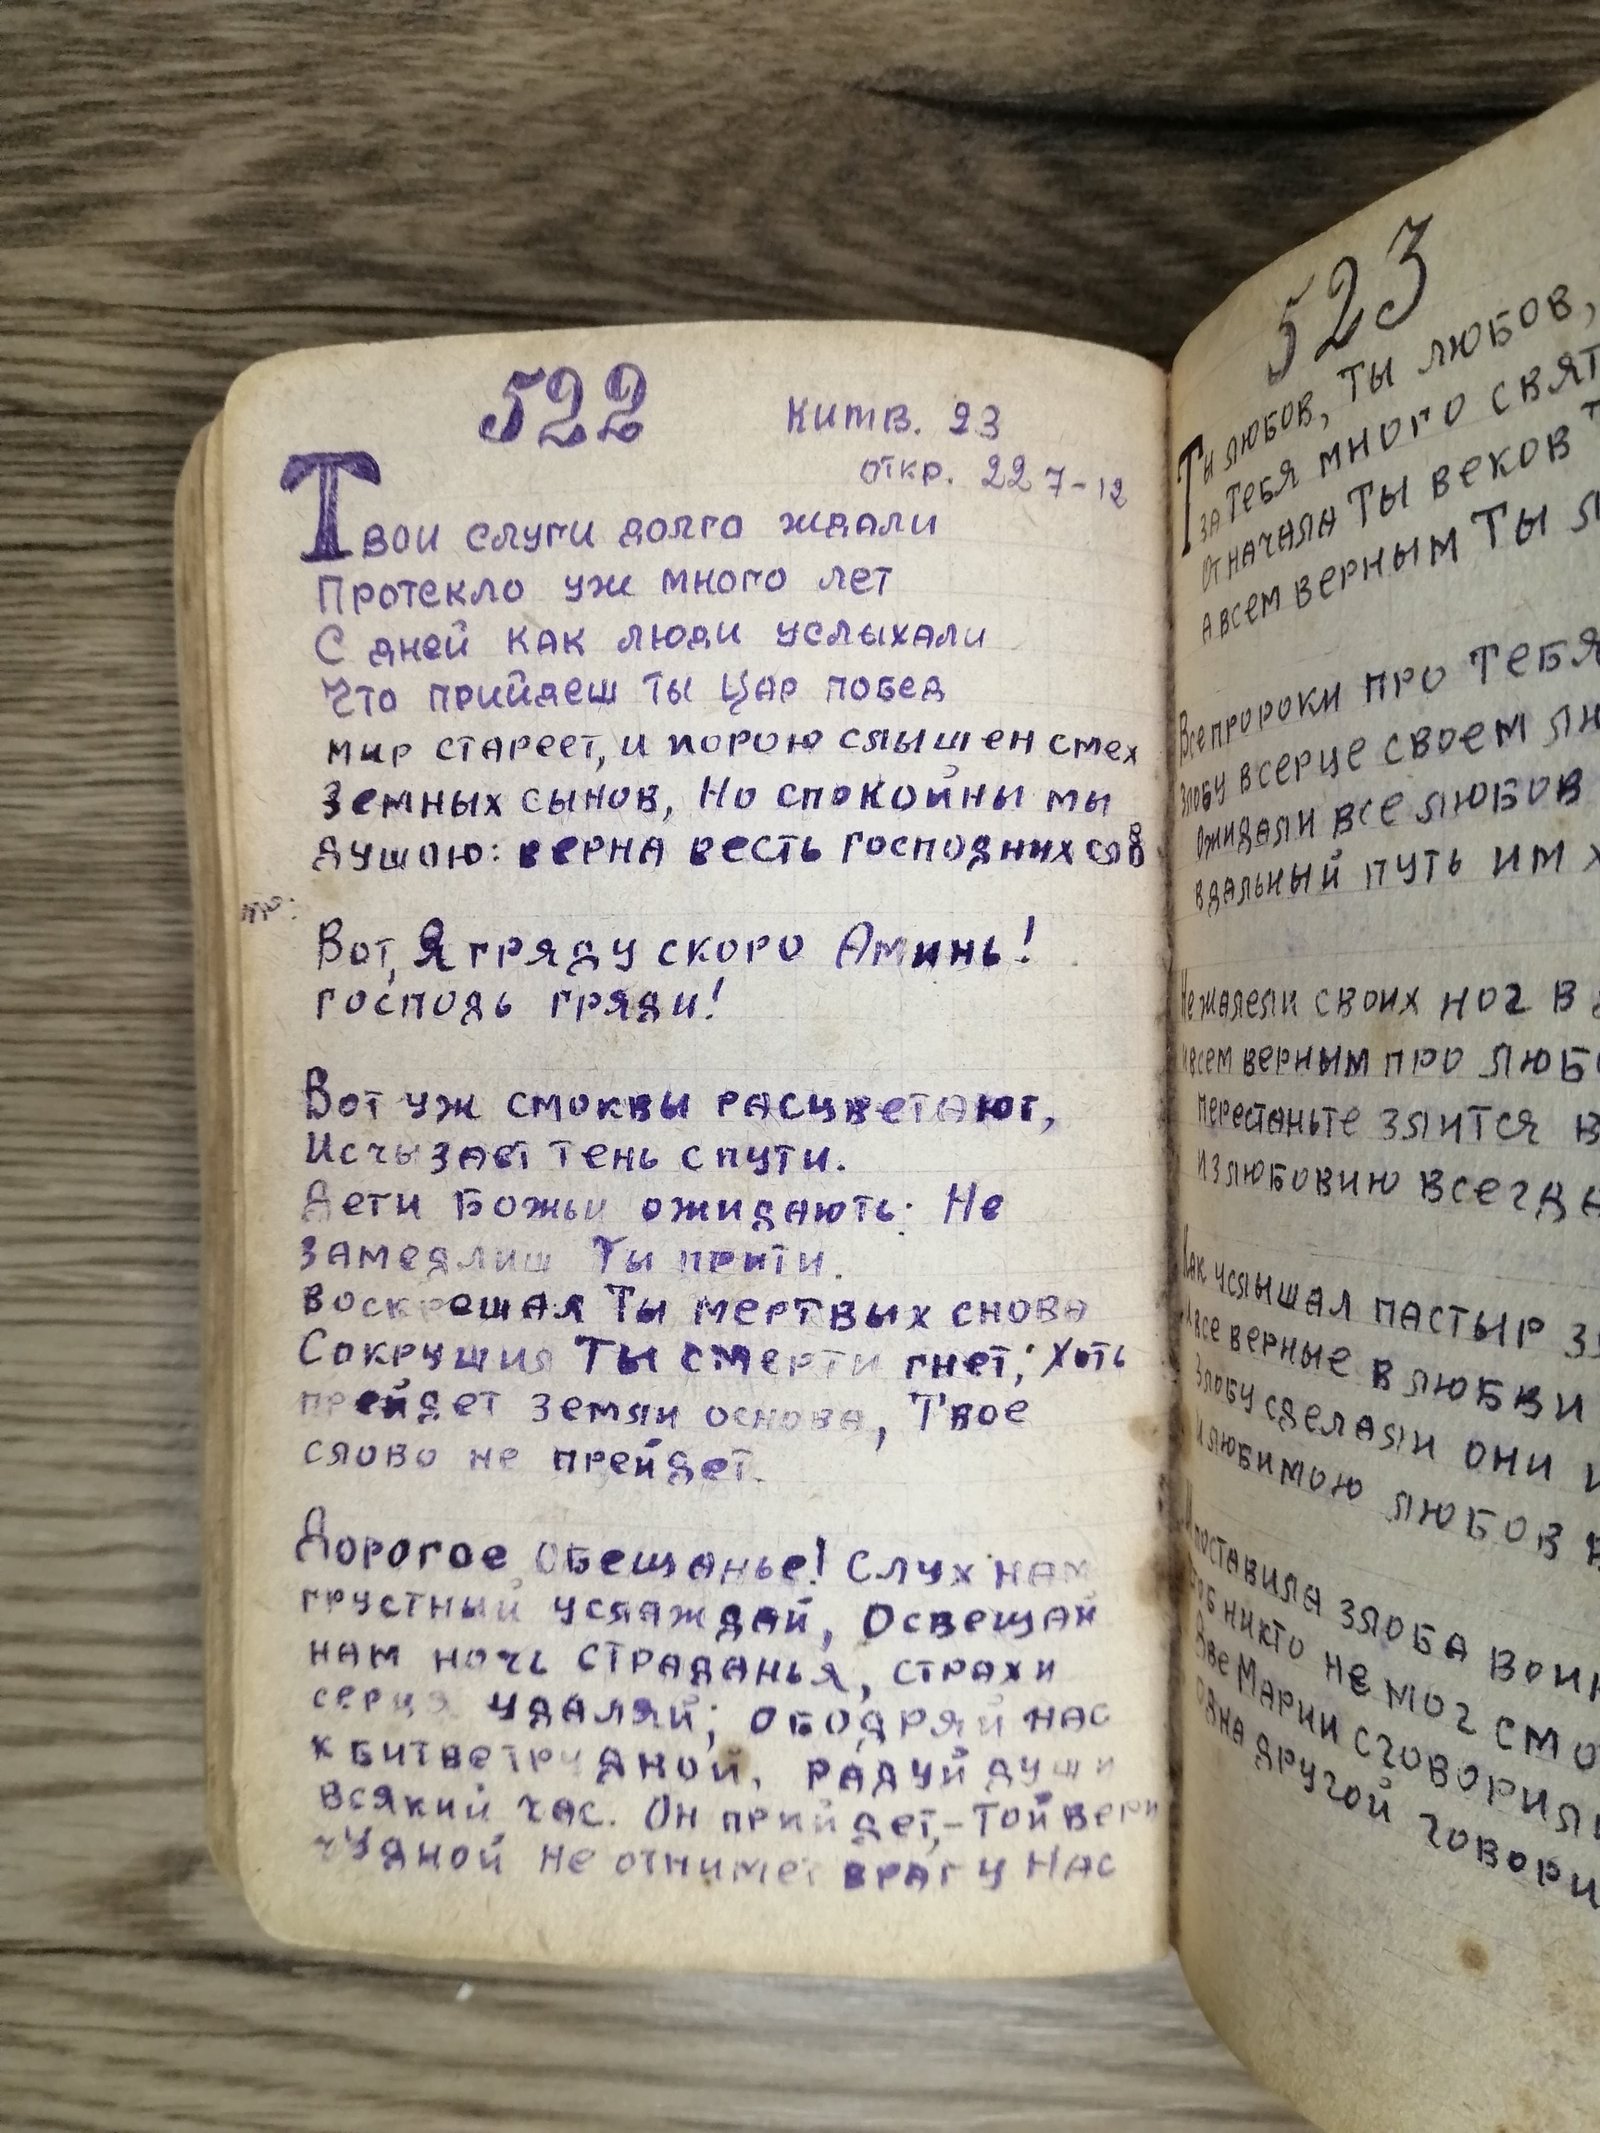 522
Китв. 23
откр. 22 7-12
Твои слуги долго ждали
Протекло уж много лет
С дней как люди услыхали
Что прийдеш ты Цар побед
мир стареет, и порою слышен смех
Земных сынов, Но спокойны мы
душою: верна весть господних слов
Вот, Я гряду скоро Аминь!
господь гряди!
Вот уж смоквы расцветают,
Исчызает тень с пути.
Дети Божьи ожидають: Не
замедлиш Ты прити.
Воскрешая Ты мертвых снова
Сокрушил Ты смерти гнет; Хоть
прейдет земли основа, Твое
слово не прейдет.
Дорогое обещанье! Слух нам
грустный услаждай, Освещай
нам ночь страданья, страхи
серца удаляй; ободряй нас
к битве трудной, радуй души
всякий час. Он прийдет,- той веры
чудной не отнимет враг у нас
523
Ты любов, ты любов,
за тебя много свят
От начала ты веков Т
А всем верным Ты л
Все пророки про тебя
Злобу всерце своем лю
Ожидали все любов
вдальный путь им х
Не жалели своих ног в д
Ивсем верным про любо
перестаньте злится в
Излюбовию всегда
Как услышал пастыр зл
все верные в любви
Злобу сделали они и
И любимою любов в
И поставила злоба воин
чтоб никто не мог смо
Две Марии сговорил
Одна другой говори